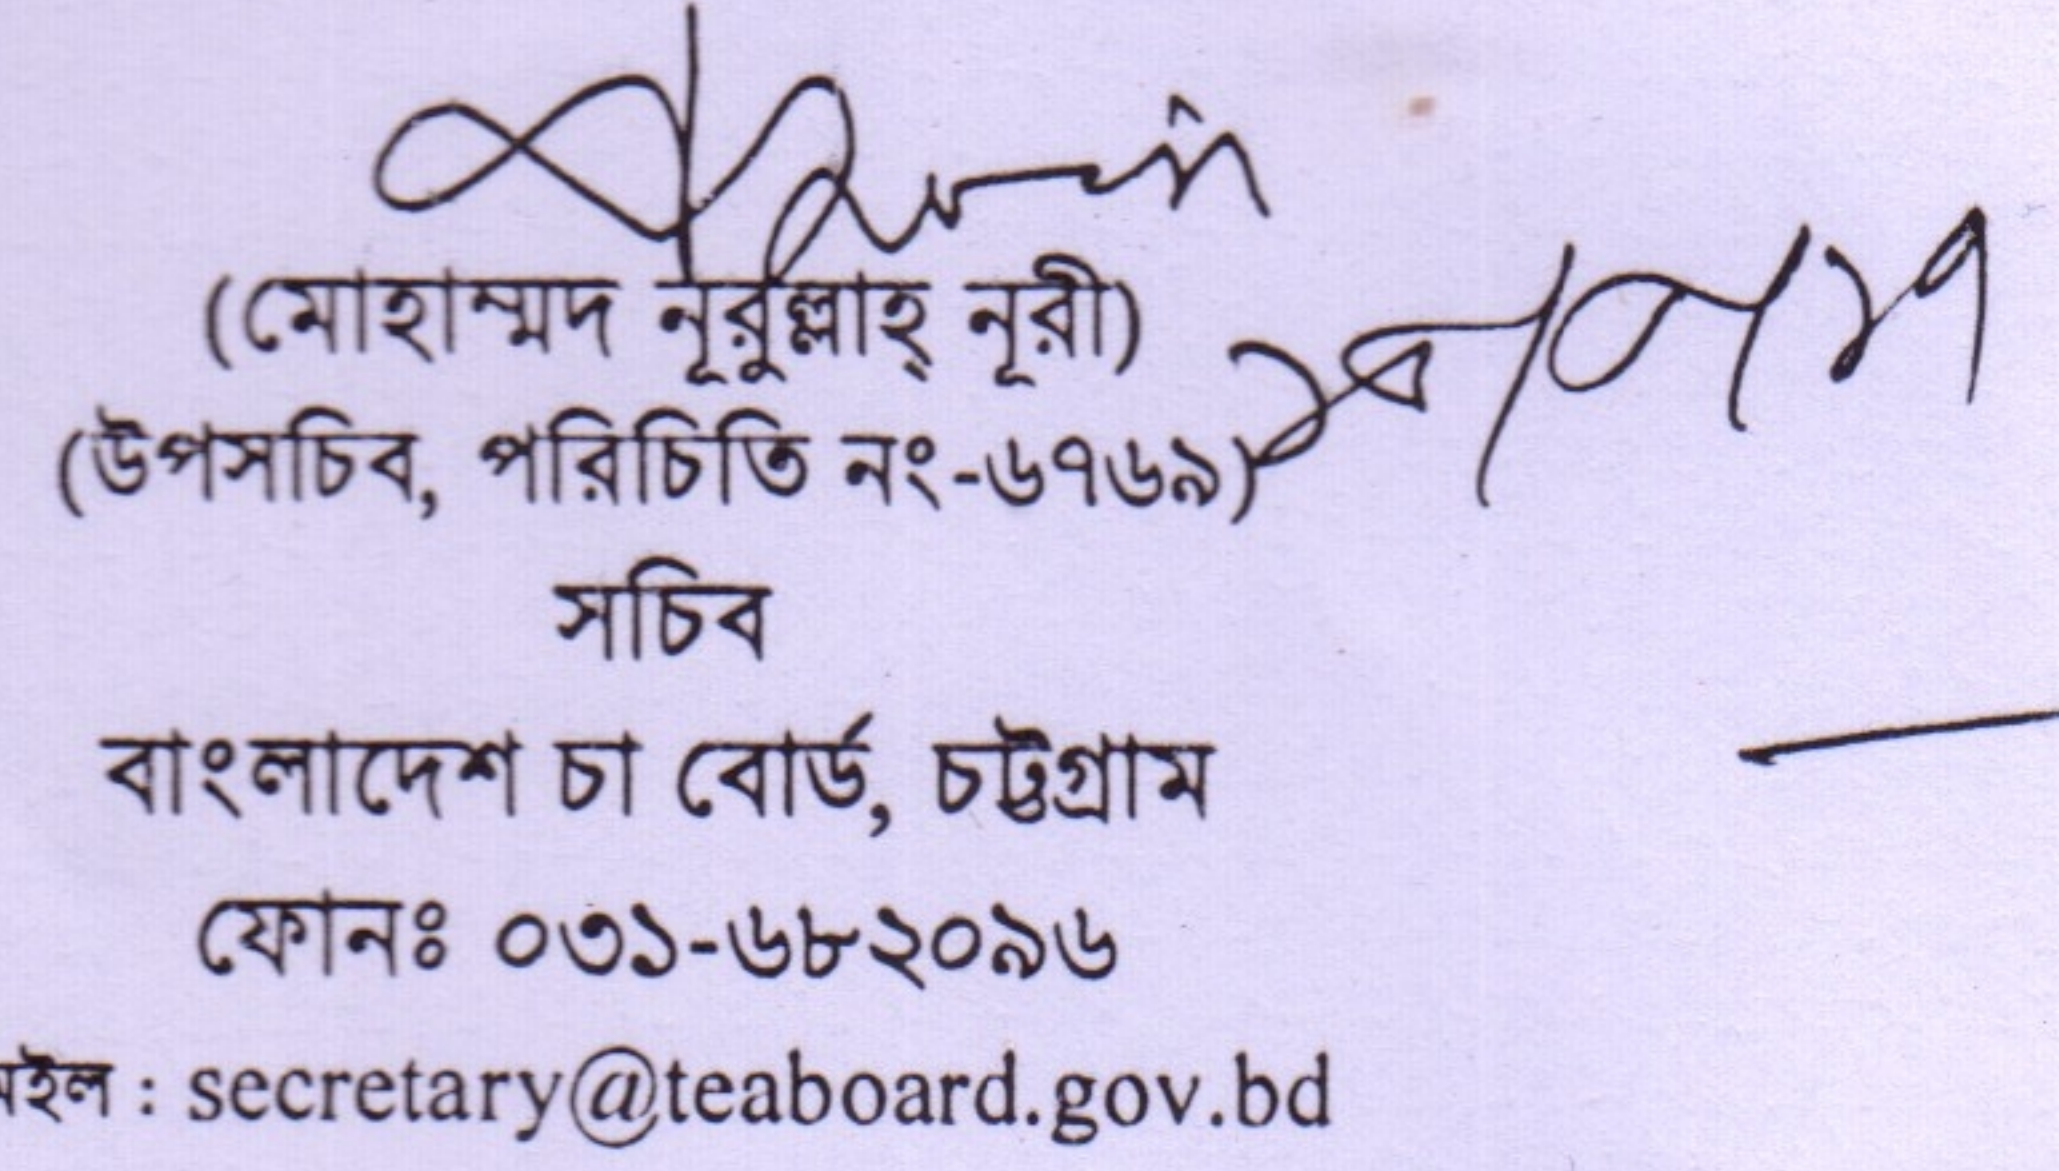 (মোহাম্মদ নূরুল্লাহ্ নূরী)
(উপসচিব, পরিচিতি নং-৬৭৬৯)
সচিব
বাংলাদেশ চা বোর্ড, চট্টগ্রাম
ফোনঃ ০৩১-৬৮২০৯৬
মইল : secretary@teaboard.gov.bd